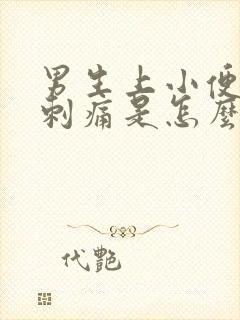 男生上小便
刺痛是怎麼
代艷